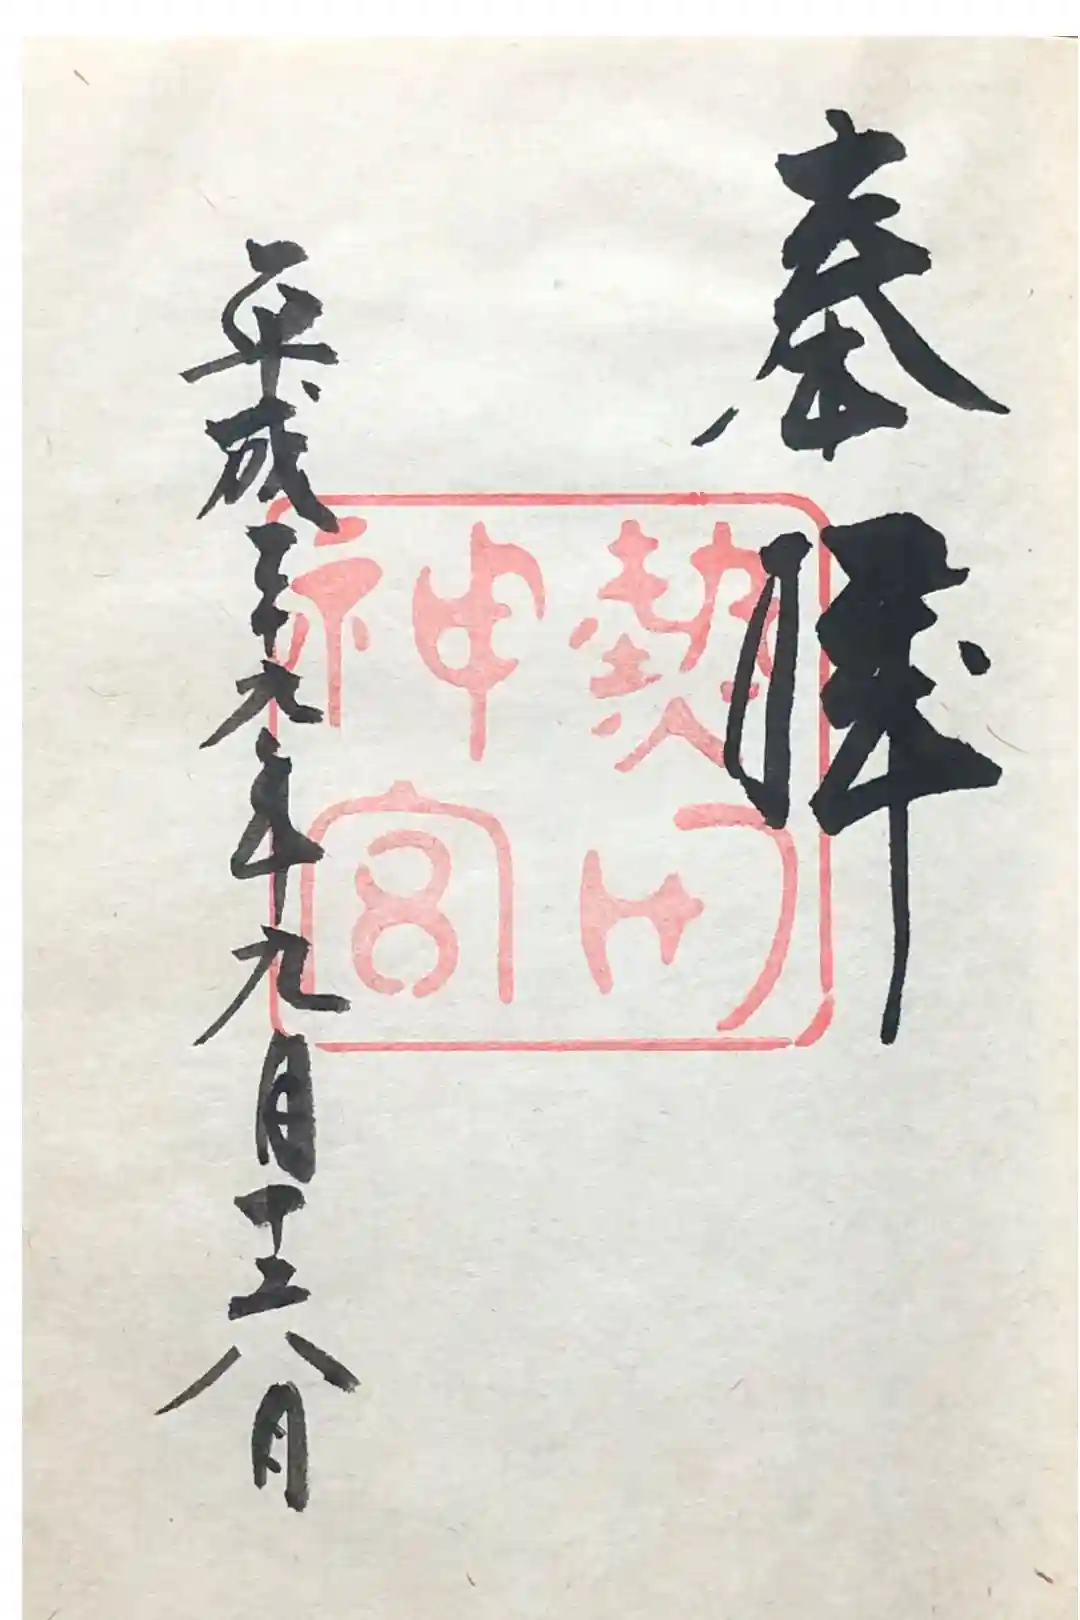 奉拝
熱田
神宮
平成二十九年九月十六日